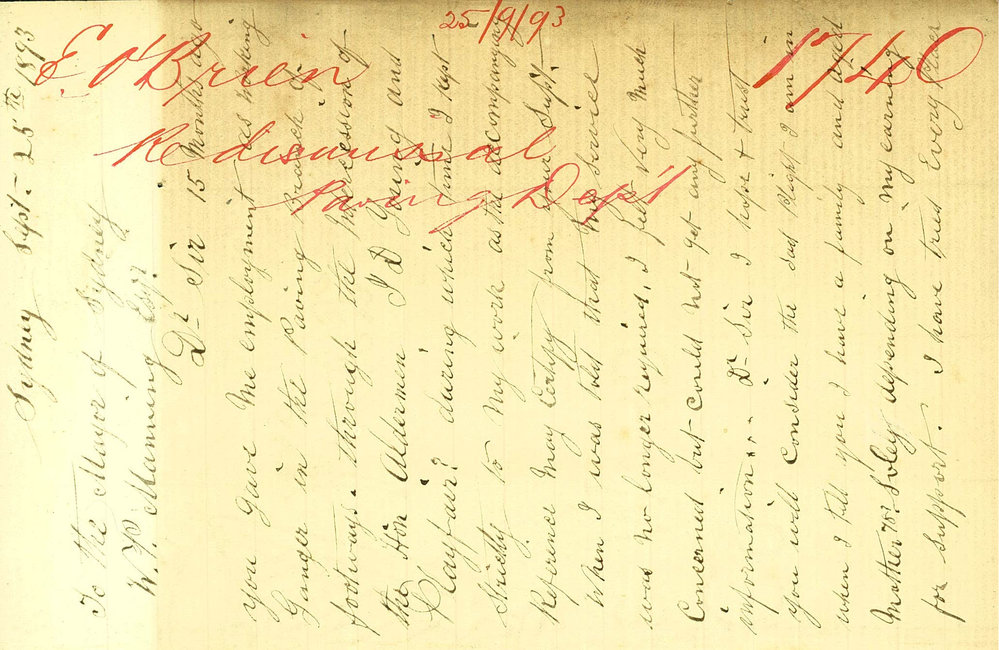 25/9/93
E. O'Brien
1740
Re dismissal
Paving Dept
Sydney Sept. 25th 1893
To the Mayor of Sydney
W. P. Manning Esqr.
Dr Sir 15 Months ago
you gave me employment as working
Ganger in the Paving Branch of
footways. through the intercession of
the Hon Aldermen J D Young and
Playfair? during which time I kept
strictly to my work as the accompanying
Reference may Certify from your Supt.
When I was told that my Service
was no longer required, I felt very much
Concerned but could not get any further
information... Dr Sir I hope & trust
you will Consider the sad Plight I am in
when I tell you I have a family and aged
Mother 78. Soley depending on my earning
for support. I have tried Every place